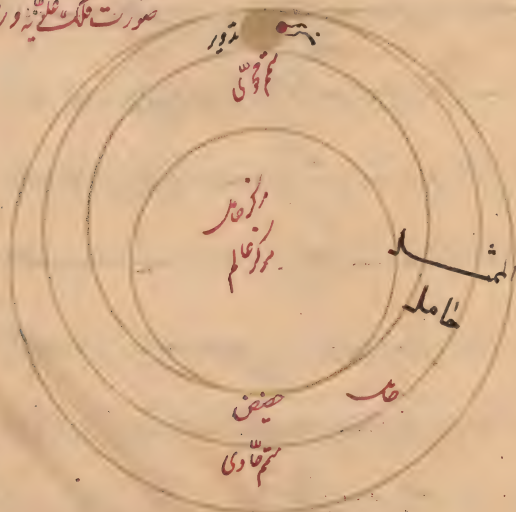 صورت فلک
تدویر
متمم محوی
مرکز حامل
مرکز عالم
الممثل
حامله
حامل
حضیض
متمم حاوی